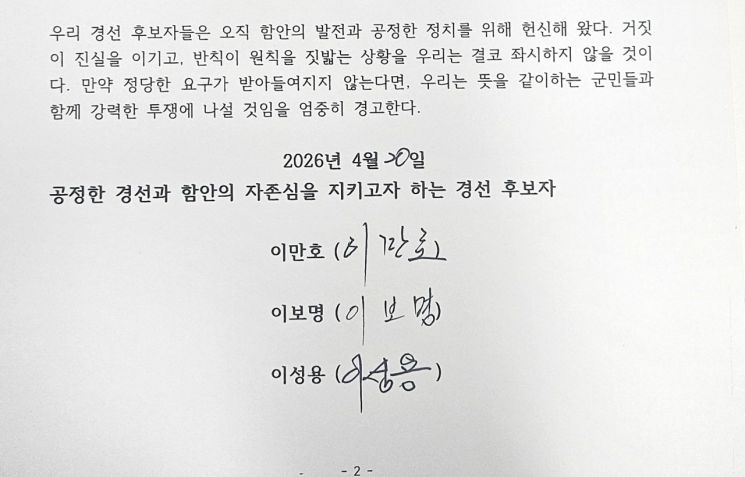 우리 경선 후보자들은 오직 함안의 발전과 공정한 정치를 위해 헌신해 왔다. 거짓
이 진실을 이기고, 반칙이 원칙을 짓밟는 상황을 우리는 결코 좌시하지 않을 것이
다. 만약 정당한 요구가 받아들여지지 않는다면, 우리는 뜻을 같이하는 군민들과
함께 강력한 투쟁에 나설 것임을 엄중히 경고한다.
2026년 4월 20일
공정한 경선과 함안의 자존심을 지키고자 하는 경선 후보자
이만호 (이만호)
이보명 (이보명)
이성용 (이성용)
- 2 -